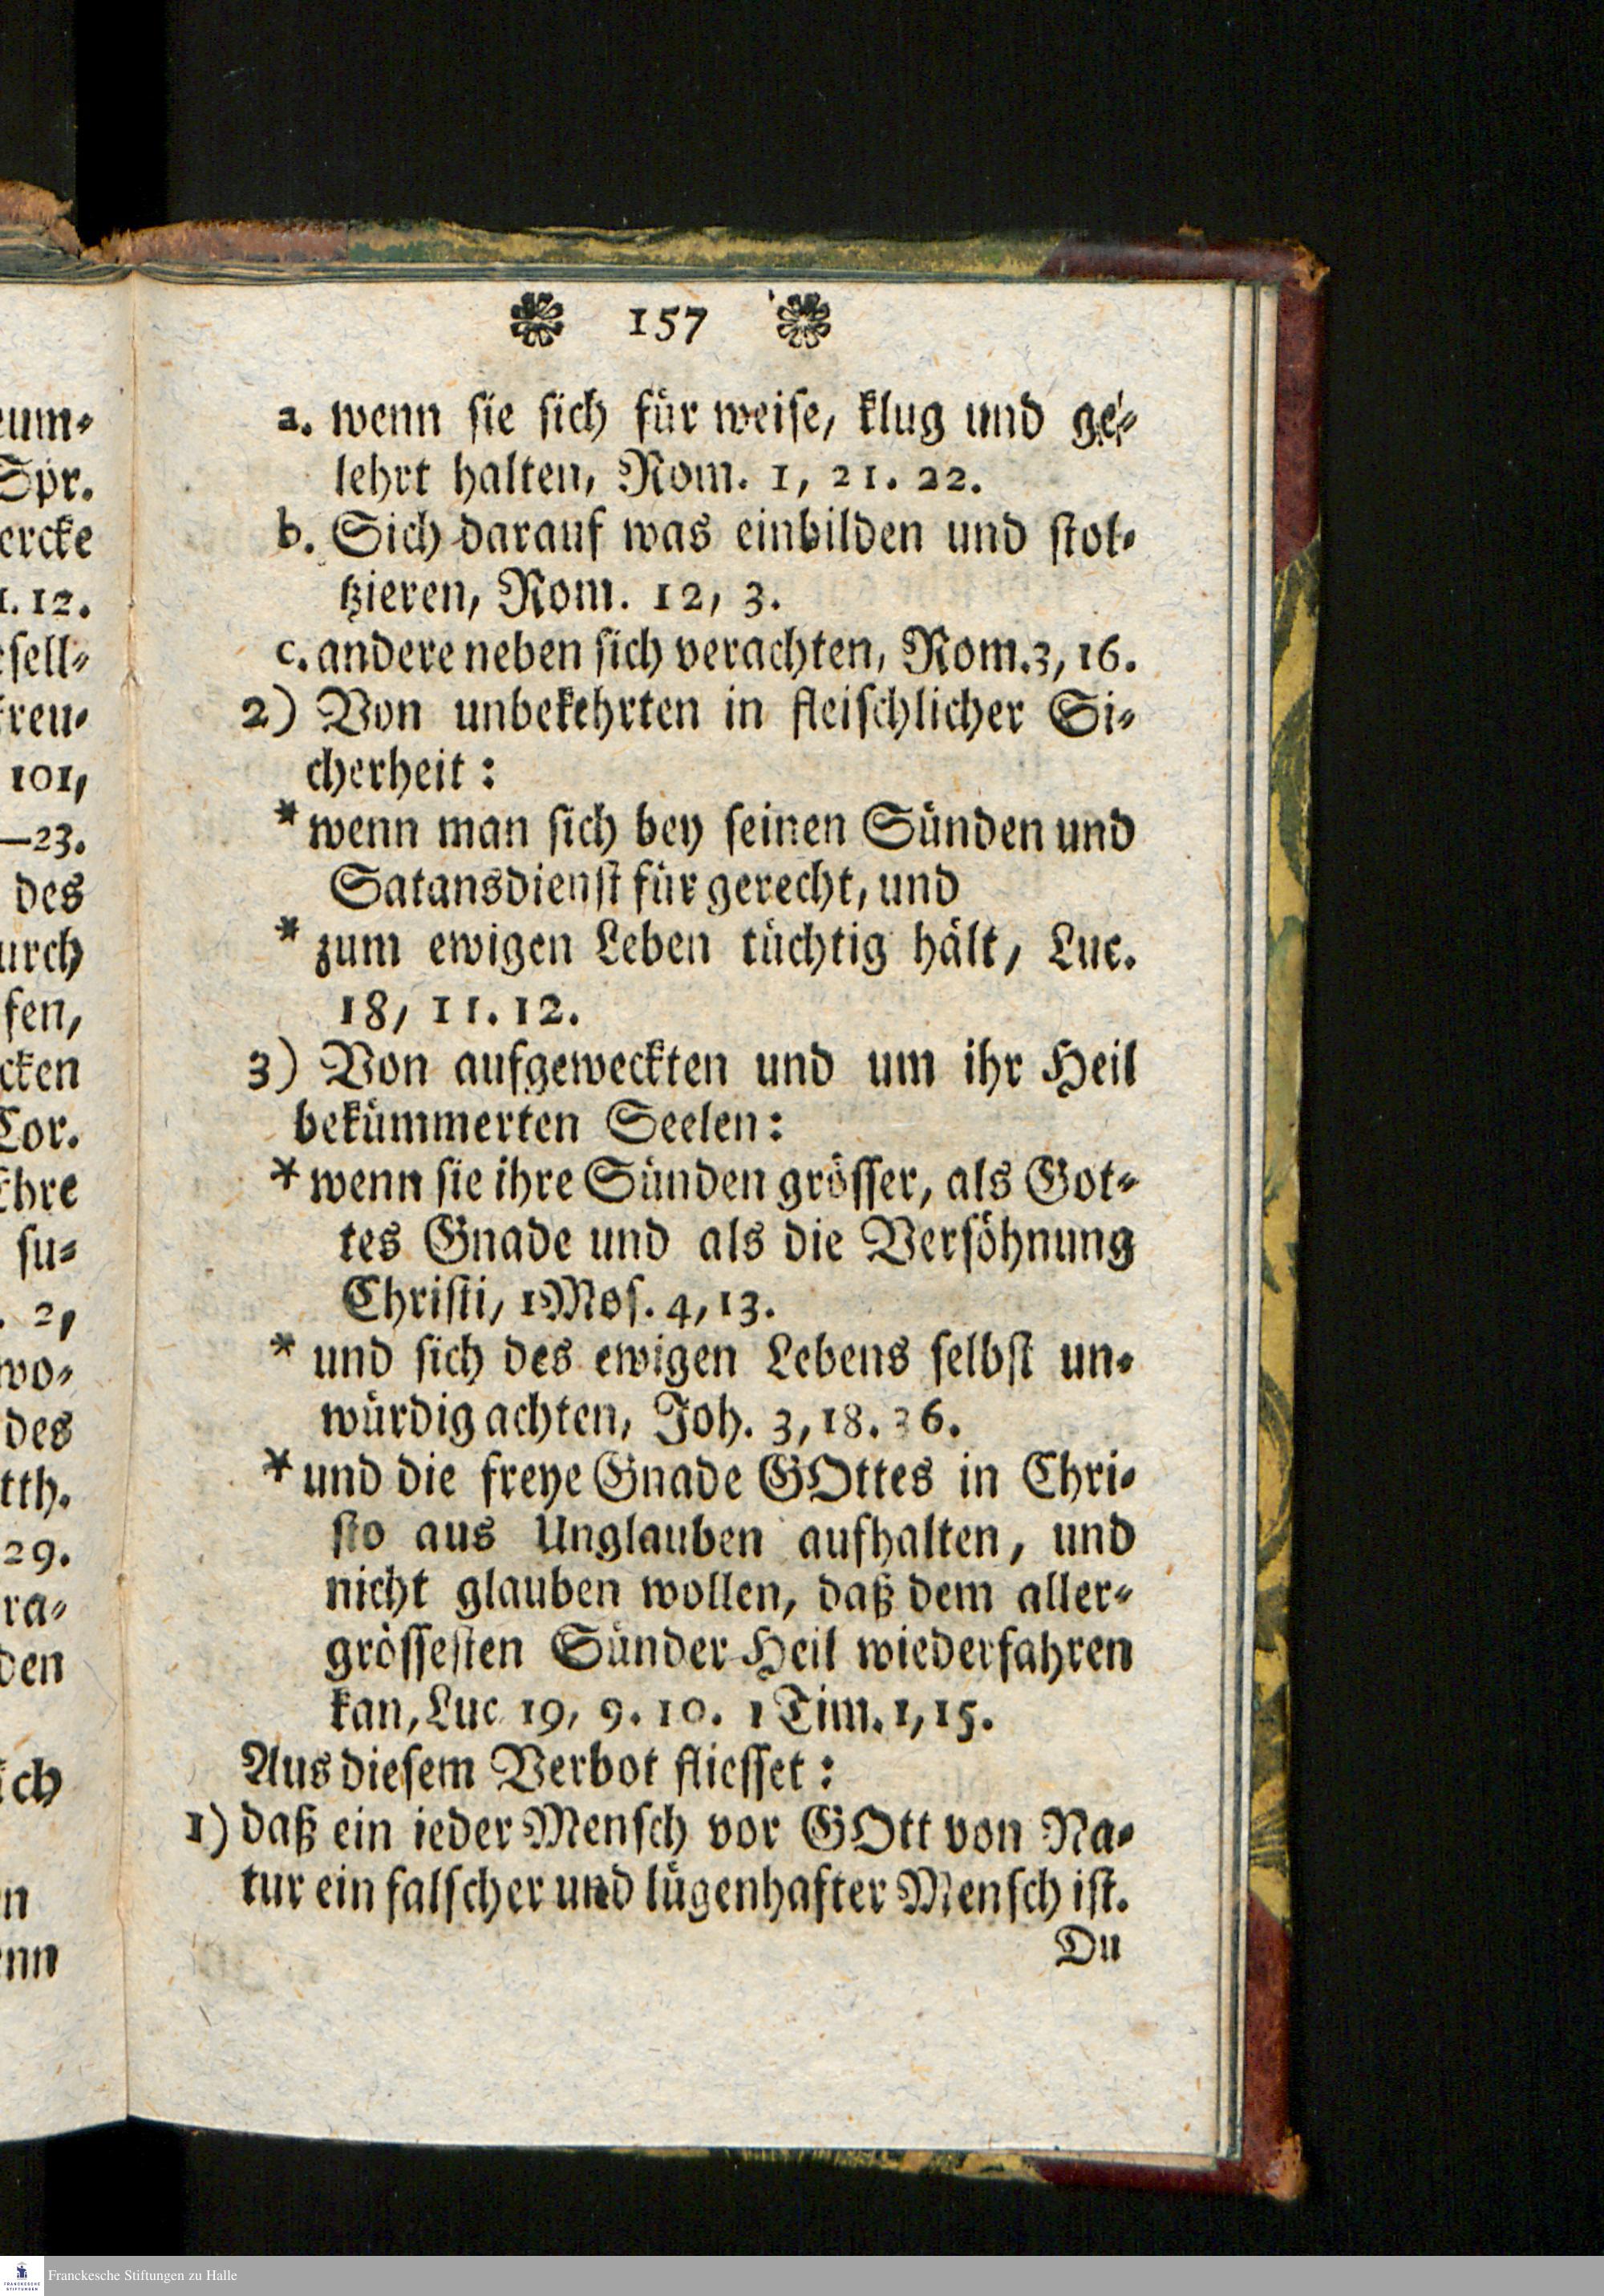 157
a. wenn sie sich für weise, klug und ge-
lehrt halten, Rom. 1, 21. 22.
b. Sich darauf was einbilden und stol-
tzieren, Rom. 12, 3.
c. andere neben sich verachten, Rom. 3, 16.
2) Von unbekehrten in fleischlicher Si-
cherheit:
* wenn man sich bey seinen Sünden und
Satansdienst für gerecht, und
* zum ewigen Leben tüchtig hält, Luc.
18, 11. 12.
3) Von aufgeweckten und um ihr Heil
bekümmerten Seelen:
* wenn sie ihre Sünden grösser, als Got-
tes Gnade und als die Versöhnung
Christi, 1 Mos. 4, 13.
* und sich des ewigen Lebens selbst un-
würdig achten, Joh. 3, 18. 36.
* und die freye Gnade GOttes in Chri-
sto aus Unglauben aufhalten, und
nicht glauben wollen, daß dem aller-
grössesten Sünder Heil wiederfahren
kan, Luc 19, 9. 10. 1 Tim. 1, 15.
Aus diesem Verbot fliesset:
1) daß ein ieder Mensch vor GOtt von Na-
tur ein falscher und lügenhafter Mensch ist.
Du
Franckesche Stiftungen zu Halle